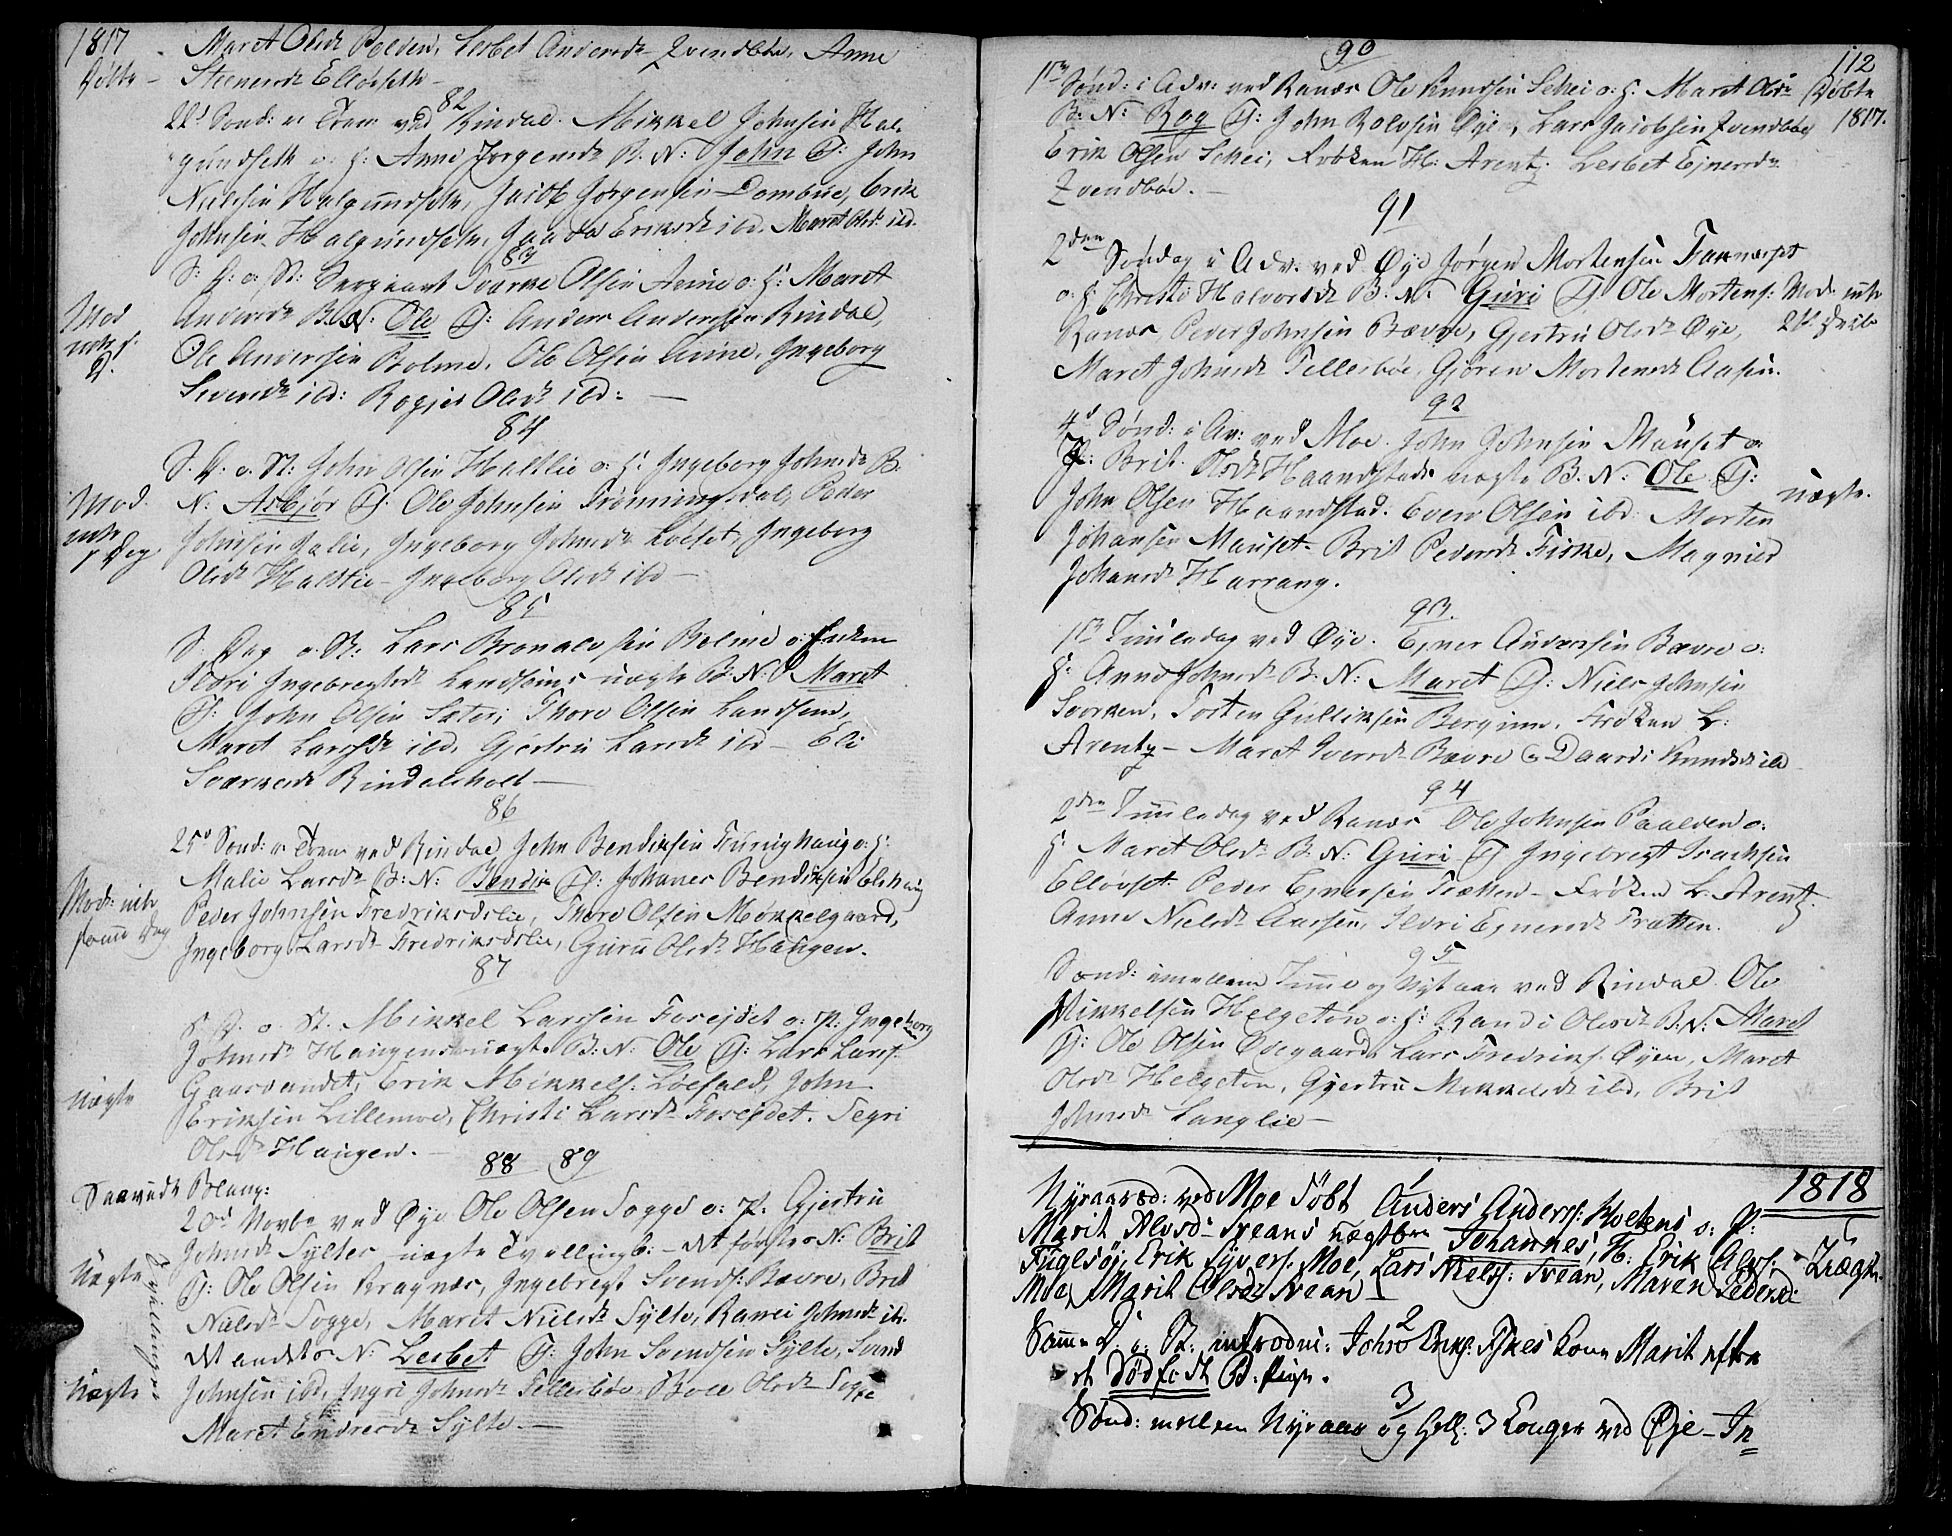 1817
Døbte
Maret Olsdr Polden, Lesbet Andersdr Zvendbøe, Anne
Steenersdr Elløvseth
82
22d Sønd: e: Tren: ved Rindal. Mikkel Johnsen Hal-
gundseth o: h: Anne Jørgensdr B: N: John F: John
Nielsen Halgundseth, Jacob Jørgensen Dombue, Erik
Johnsen Halgundseth, Eriksdr ibd. Maret Olsdr ibd.
83
S: D: o: St: Sergeant Sværke Olsen Aune o: h: Maret
Andersdr B: N: Ole F: Anders Andersen Rindal,
Ole Andersen Bolme, Ole Olsen Aune, Ingeborg
Sivertsdr ibd: Olsdr ibd:
Mod
intr: s:
D.
84
S: D: o: St: John Olsen Haltlie o: h: Ingeborg Johnsdr B:
N: Asbjør F: Ole Johnsen Trønningsdal, Peder
Johnsen Jalie, Ingeborg Johnsdr Løeset, Ingeborg
Olsdr Haltlie - Ingeborg Olsdr ibd
Mod.
intr
s: Dag
85
S. Dag o: St: Lars Bronalvsen Bolme o: Enken
Sldri Ingebregtsdr Landsems uægte B: N: Maret
F: John Olsen Sæter, Thore Olsen Landsem,
Maret Larsdr ibd, Gjertru Larsdr ibd - Eli
Sværkesdr Rindalshold
86
25d Sønd: e: Tren: ved Rindal John Bendiksen Furuhaug o: h:
Malie Larsdr B: N: Bendik F: Johanes Bendiksen
Peder Johnsen Fredriksdslie, Thore Olsen Møkkelgaard,
Ingeborg Larsdr Fredriksdslie, Guru Olsdr Haugen.
Mod: intr
samme Dag
87
S D. o. St. Mikkel Larssen Foseidet o: P: Ingeborg
Johnsdr Haugens uægte B: N: Ole F: Lars Larss.
Gaasvandet, Erik Mikkels: Løefald, John
Eriksen Lillemoe, Christi Larsdr Foseidet. Segri
Olsdr Haugen.
uægte
88 89
Saavidt Blang:
20d Novbr ved Øye Ole Olsen Sogge o: P: Gjertru
Johnsdr Sylter uægte Tvillingb: - det første N: Brit
F: Ole Olsen Kragnæs, Ingebregt Svends: Bævre, Brit
Nielsdr Sogge, Maret Nielsdr Sylte, Ranei Johnsdr ib.
det andet N: Lesbet F: John Svendsen Sylte, Svend
Johnsen ibd, Ingri Johnsdr Tellesbøe, Olsdr Sogge
Maret Endresdr Sylte.
Uægte
Tvillinger
Uægte
112
Døbte
1817.
90
1ste Sønd: i Adv: ved Ranæs Ole Knudsen Schei o: h: Maret Olsdr
B: N: Rog F: John Rolvsen Øye, Lars Jacobsen Zvendbøe
Erik Olsen Schei, Frøken H: Arentz. Lesbet Ejnersdr
Zvendbøe.
91
2den Søndag i Adv. ved Øye Jørgen Mortensen
o: h: Christi Halvorsdr B: N: Guri F: Ole Mortens:
Ranæs Peder Johnsen Bævre, Gjertru Olsdr Øye,
Maret Johnsdr Tellesbøe, Gjøren Mortensdr Aasen.
Mod: intr
2d Juule
92
4d Sønd: i Av: ved Moe. John Johnsen Mauset o:
P: Brit Olsdr Haandstads uægte B: N: Ole F:
John Olsen Haandstad. Evers Olsen ibd Morten
Johansen Mauset. Brit Pedersdr Fiske, Magnild
Johansdr Harrang.
uægte.
93.
1ste Juuledag ved Øye. Ejner Andersen Bævre o:
h: Anne Johnsdr B: N: Maret F: Niels Johnsen
Sværken, Torsten Gulliksen Bergem. Frøken L:
Arentz - Maret Iversdr Bævre Daardi Knudsdr ibd
94
2den Juuledag ved Ranæs Ole Johnsen Paalden o:
h: Maret Olsdr B: N: Guri F: Ingebregt Isachsen
Elløvset. Peder Ejnersen Trætten - Frøken L: Arentz
Anne Nielsdr Aarsen, Sldri Ejnersdr Trætten.
95
Sønd: imellem Juul og Nyt aar ved Rindal Ole
Mikkelsen Helgeton o: h: Randi Olsdr B: N: Maret
F: Ole Olsen Ødegaard, Lars Fredriks: Øyen, Maret
Olsdr Helgeton, Gjertru Mikkelsdr ibd, Brit
Johnsdr Langlie
1818
1
Nyraarsd: ved Moe døbt Anders Anderss: Holtens o: P:
Marit Alvsd: Sveans uægtebarn Johannes, F: Erik Olss:
Fuglsøj, Erik Syvers. Moe, Lars Nielss: Svean, Maren Pedersd:
Moe, Marit Olsdr Svean
Uægte
2
Samme D. o. St. introdu: Johs Erikss: Fiskes Kone Marit efter
et dødfødt B. Pige.
3
Sønd: mellem Nyraar og hell: 3 Konger ved Øje - In=